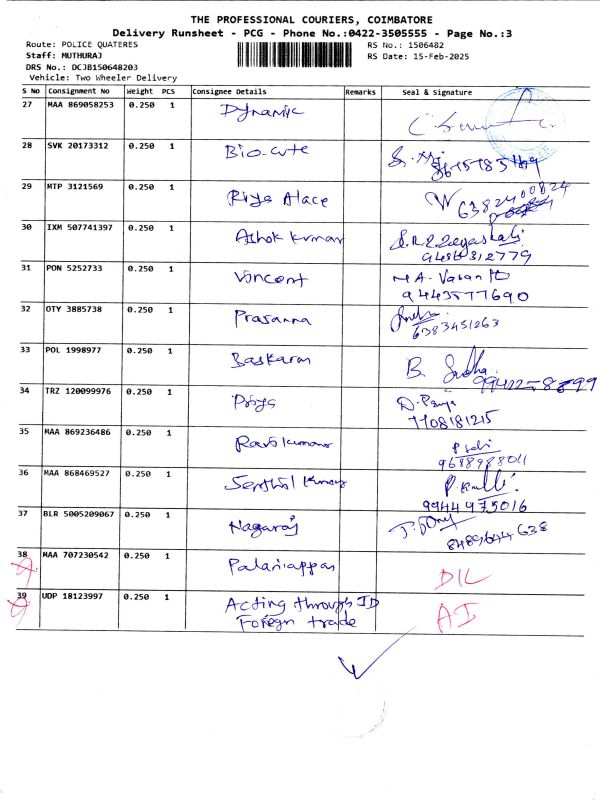 THE PROFESSIONAL COURIERS, COIMBATORE
Delivery Runsheet - PCG - Phone No.:0422-3505555 - Page No.:3
Route: POLICE QUATERES RS No.: 1506482
Staff: MUTHURAJ RS Date: 15-Feb-2025
DRS No.: DCJB150648203
Vehicle: Two Wheeler Delivery
S No Consignment No Weight PCS Consignee Details Remarks Seal & Signature
27 MAA 869058253 0.250 1 Dynamic
28 SVK 20173312 0.250 1 Bio-cute
29 MTP 3121569 0.250 1 Riya Alace
6382400824
30 IXM 507741397 0.250 1 Ashok kumar
9486312779
31 PON 5252733 0.250 1 Vincent M.A. Vasanth
9443577690
32 OTY 3885738 0.250 1 Prasanna
6383451263
33 POL 1998977 0.250 1 Baskaran B. Sudha
34 TRZ 120099976 0.250 1 Priya D. Priya
7708181215
35 MAA 869236486 0.250 1 Ravikumar
9688988011
36 MAA 868469527 0.250 1 Senthil kumar
9944975016
37 BLR 5005209067 0.250 1 Nagaraj
8489644638
38 MAA 707230542 0.250 1 Palaniappan DIL
39 UDP 18123997 0.250 1 Acting through ID AI
Foreign trade